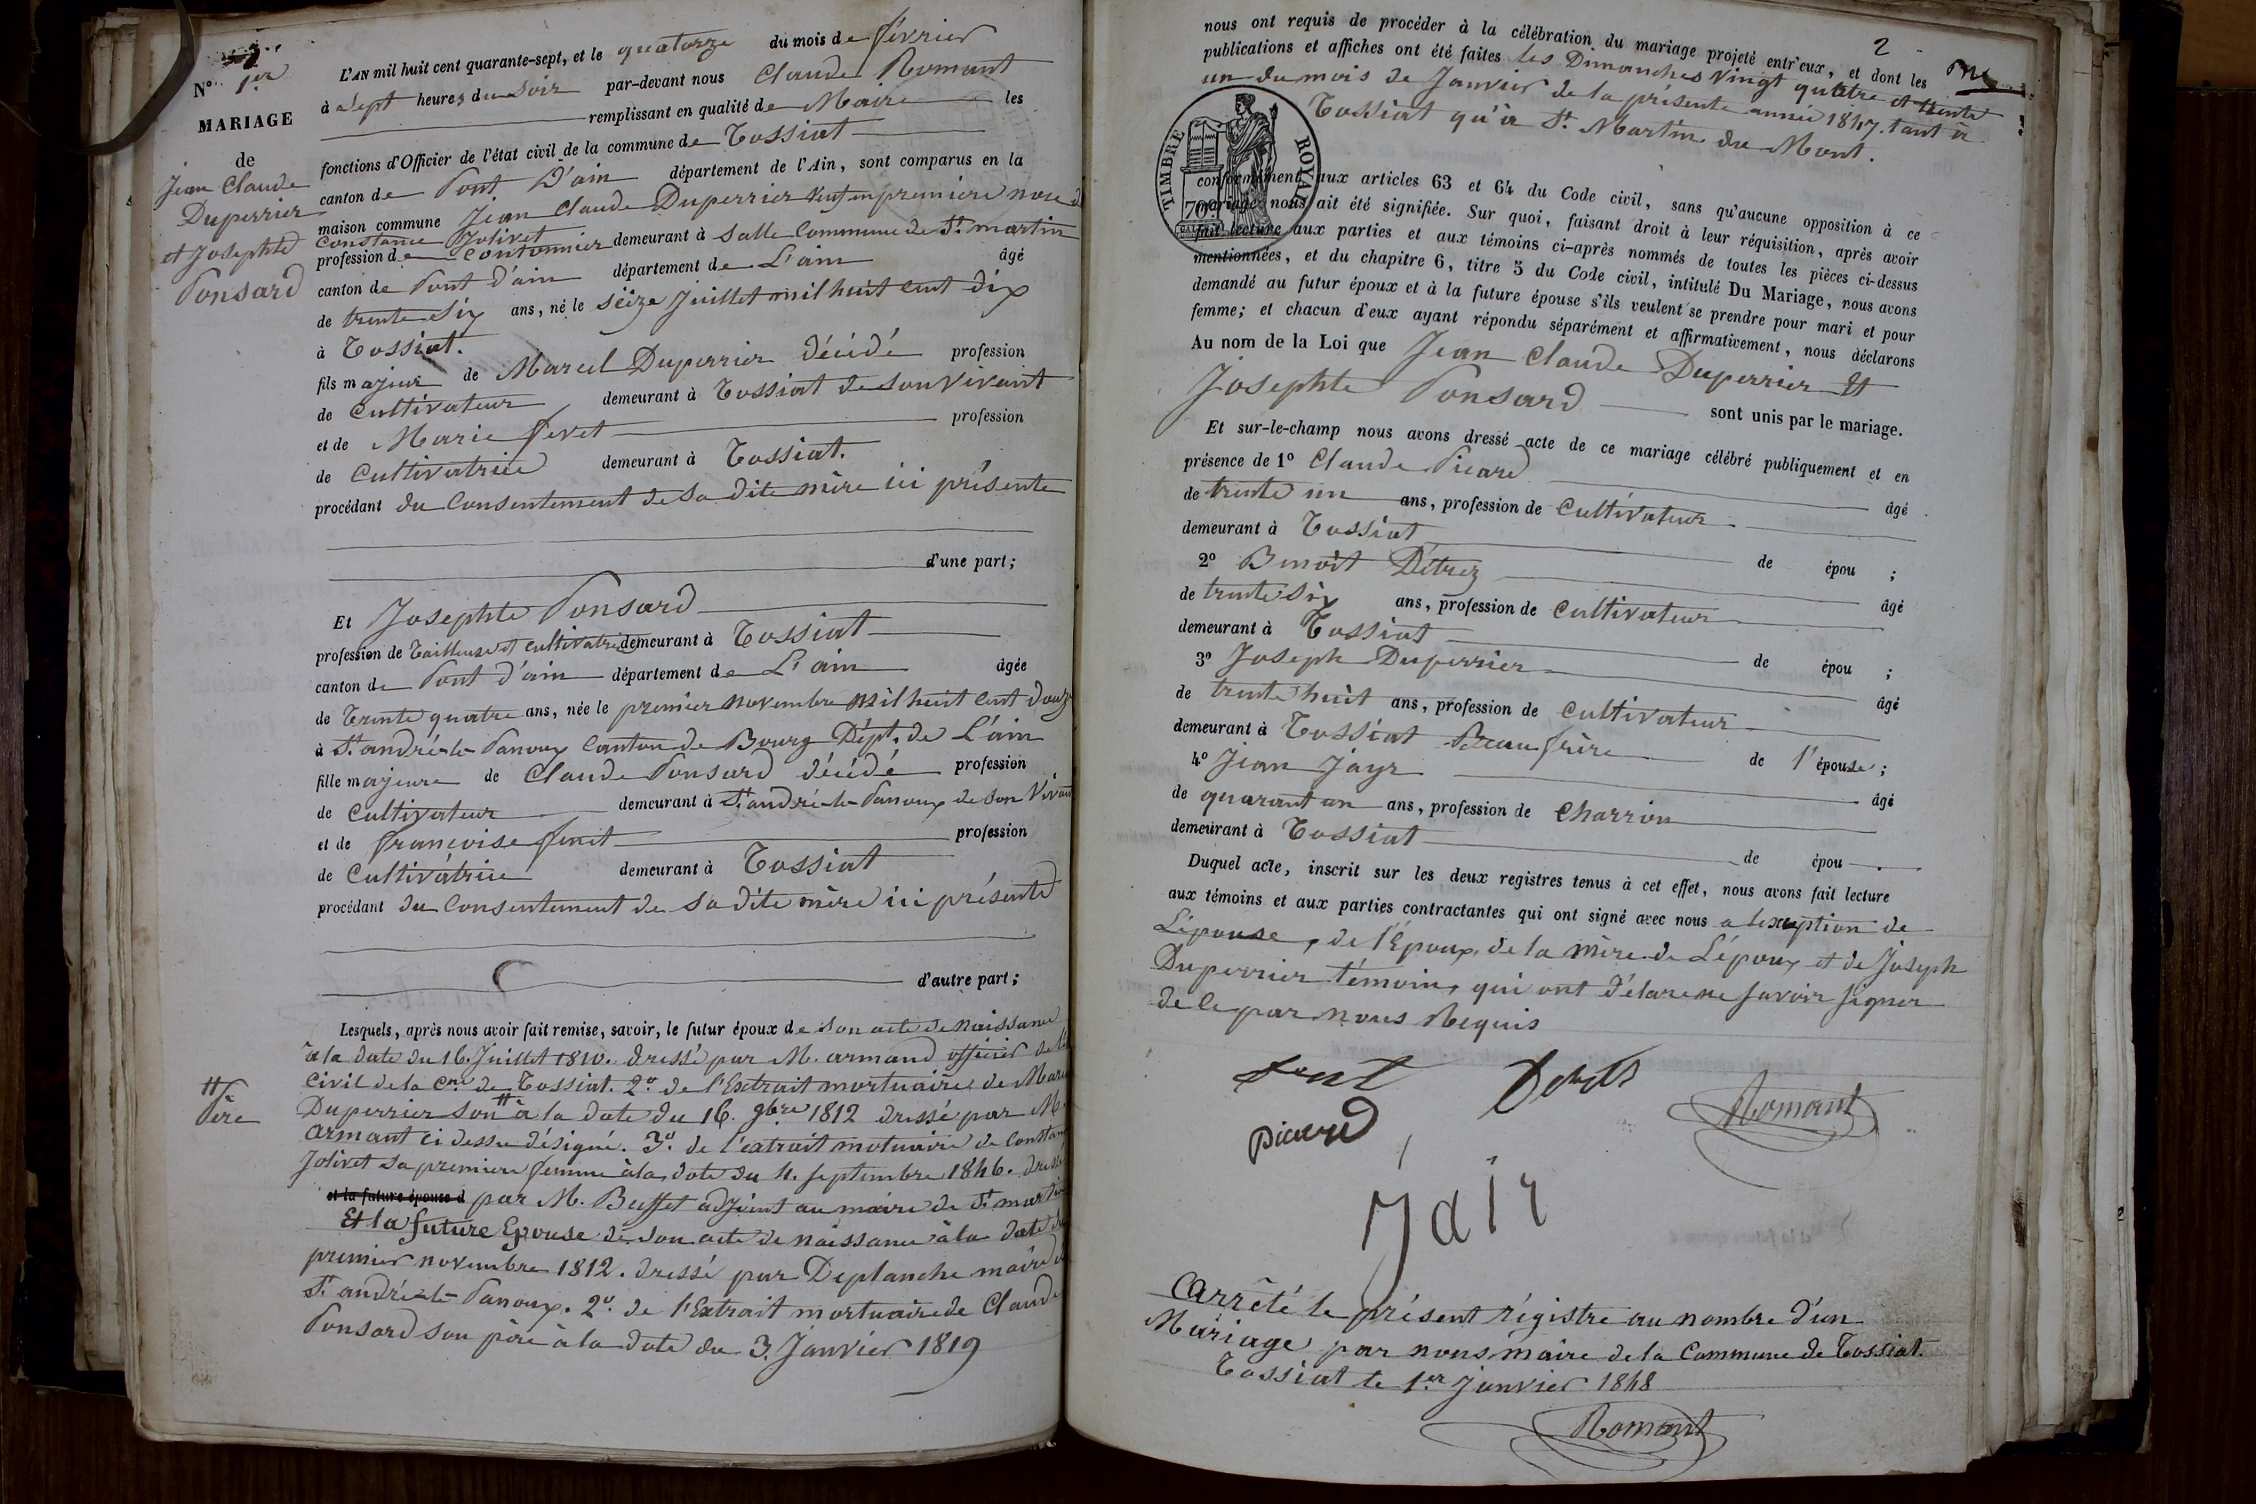 N° 1er
MARIAGE
de
Jean Claude
Duperrier
et Josephte
Ponsard
L'AN mil huit cent quarante-sept, et le quatorze du mois de février
à Sept heures du Soir par-devant nous Claude Romant
remplissant en qualité de Maire les
fonctions d'Officier de l'état civil de la commune de Tossiat
canton de Pont D'ain département de l'Ain, sont comparus en la
maison commune Jean Claude Duperrier veuf en premiere noce de
Constance Jolivet
profession de Contonnier demeurant à Salle Commune de St. martin
canton de Pont d'ain département de L'ain âgé
de trente Six ans, né le Seize Juillet mil huit cent dix
à Tossiat.
fils majeur de Marcel Duperrier décédé profession
de Cultivateur demeurant à Tossiat de son vivant
et de Marie fevet profession
de Cultivatrice demeurant à Tossiat.
procédant du Consentement de Sa dite mère ici présente
d'une part;
Et Josephte Ponsard
profession de Tailleuse et cultivatrice demeurant à Tossiat
canton de Pont d'ain département de L'ain âgée
de Trente quatre ans, née le premier novembre mil huit cent douze
à St. andré-le-Panoux Canton de Bourg Dépt. de L'ain
fille majeure de Claude Ponsard décédé profession
de Cultivateur demeurant à St. andré-le-Panoux de son vivant
et de francoise finet profession
de Cultivatrice demeurant à Tossiat
procédant du Consentement de Sa dite mère ici présente
d'autre part;
Lesquels, après nous avoir fait remise, savoir, le futur époux de son acte de naissance
à la date du 16. Juillet 1810. dressé par M. armand officier de l'
Civil de la Cne de Tossiat. 2° de l'Extrait mortuaire de Marcel
Duperrier son # à la date du 16. 9bre 1812 dressé par M.
# Père
armant ci dessu désigné. 3° de l'extrait motuaire de Constance
Jolivet Sa premiere femme à la date du 4. Septembre 1846. dressé
et la future épouse d par M. Buffet adjoint au maire de St martin
Et la future Epouse de son acte de naissance à la date du
premier novembre 1812. dressé par Deplanche maire de
St. andré-le-Panoux. 2° de l'Extrait mortuaire de Claude
Ponsard son père à la date du 3. Janvier 1819
2
nous ont requis de procéder à la célébration du mariage projeté entr'eux, et dont les
publications et affiches ont été faites les Dimanches vingt quatre et trente
un du mois de Janvier de la présente année 1847. tant à
Tossiat qu'à St. Martin du Mont.
TIMBRE ROYAL
70c
conformément aux articles 63 et 64 du Code civil, sans qu'aucune opposition à ce
mariage nous ait été signifiée. Sur quoi, faisant droit à leur réquisition, après avoir
fait lecture aux parties et aux témoins ci-après nommés de toutes les pièces ci-dessus
mentionnées, et du chapitre 6, titre 5 du Code civil, intitulé Du Mariage, nous avons
demandé au futur époux et à la future épouse s'ils veulent se prendre pour mari et pour
femme; et chacun d'eux ayant répondu séparément et affirmativement, nous déclarons
Au nom de la Loi que Jean Claude Duperrier Et
Josephte Ponsard sont unis par le mariage.
Et sur-le-champ nous avons dressé acte de ce mariage célébré publiquement et en
présence de 1° Claude Picard âgé
de trente un ans, profession de Cultivateur
demeurant à Tossiat de épou ;
2° Benoit Détrez âgé
de trente Six ans, profession de Cultivateur
demeurant à Tossiat de épou ;
3° Joseph Duperrier âgé
de trente huit ans, profession de Cultivateur
demeurant à Tossiat Beau frère de l'épouse ;
4° Jean Jayr âgé
de quarant an ans, profession de Charron
demeurant à Tossiat de épou .
Duquel acte, inscrit sur les deux registres tenus à cet effet, nous avons fait lecture
aux témoins et aux parties contractantes qui ont signé avec nous a lexception de
L'épouse, de l'Epoux, de la mère de L'époux et de Joseph
Duperrier témoin, qui ont d'élare ne Savoir Signer
de ce par nous Requis
Romant
Picard
Jair
Arrêté le présent régistre au nombre d'un
Mariage par nous maire de la Commune de Tossiat.
Tossiat le 1er Janvier 1848
Romant